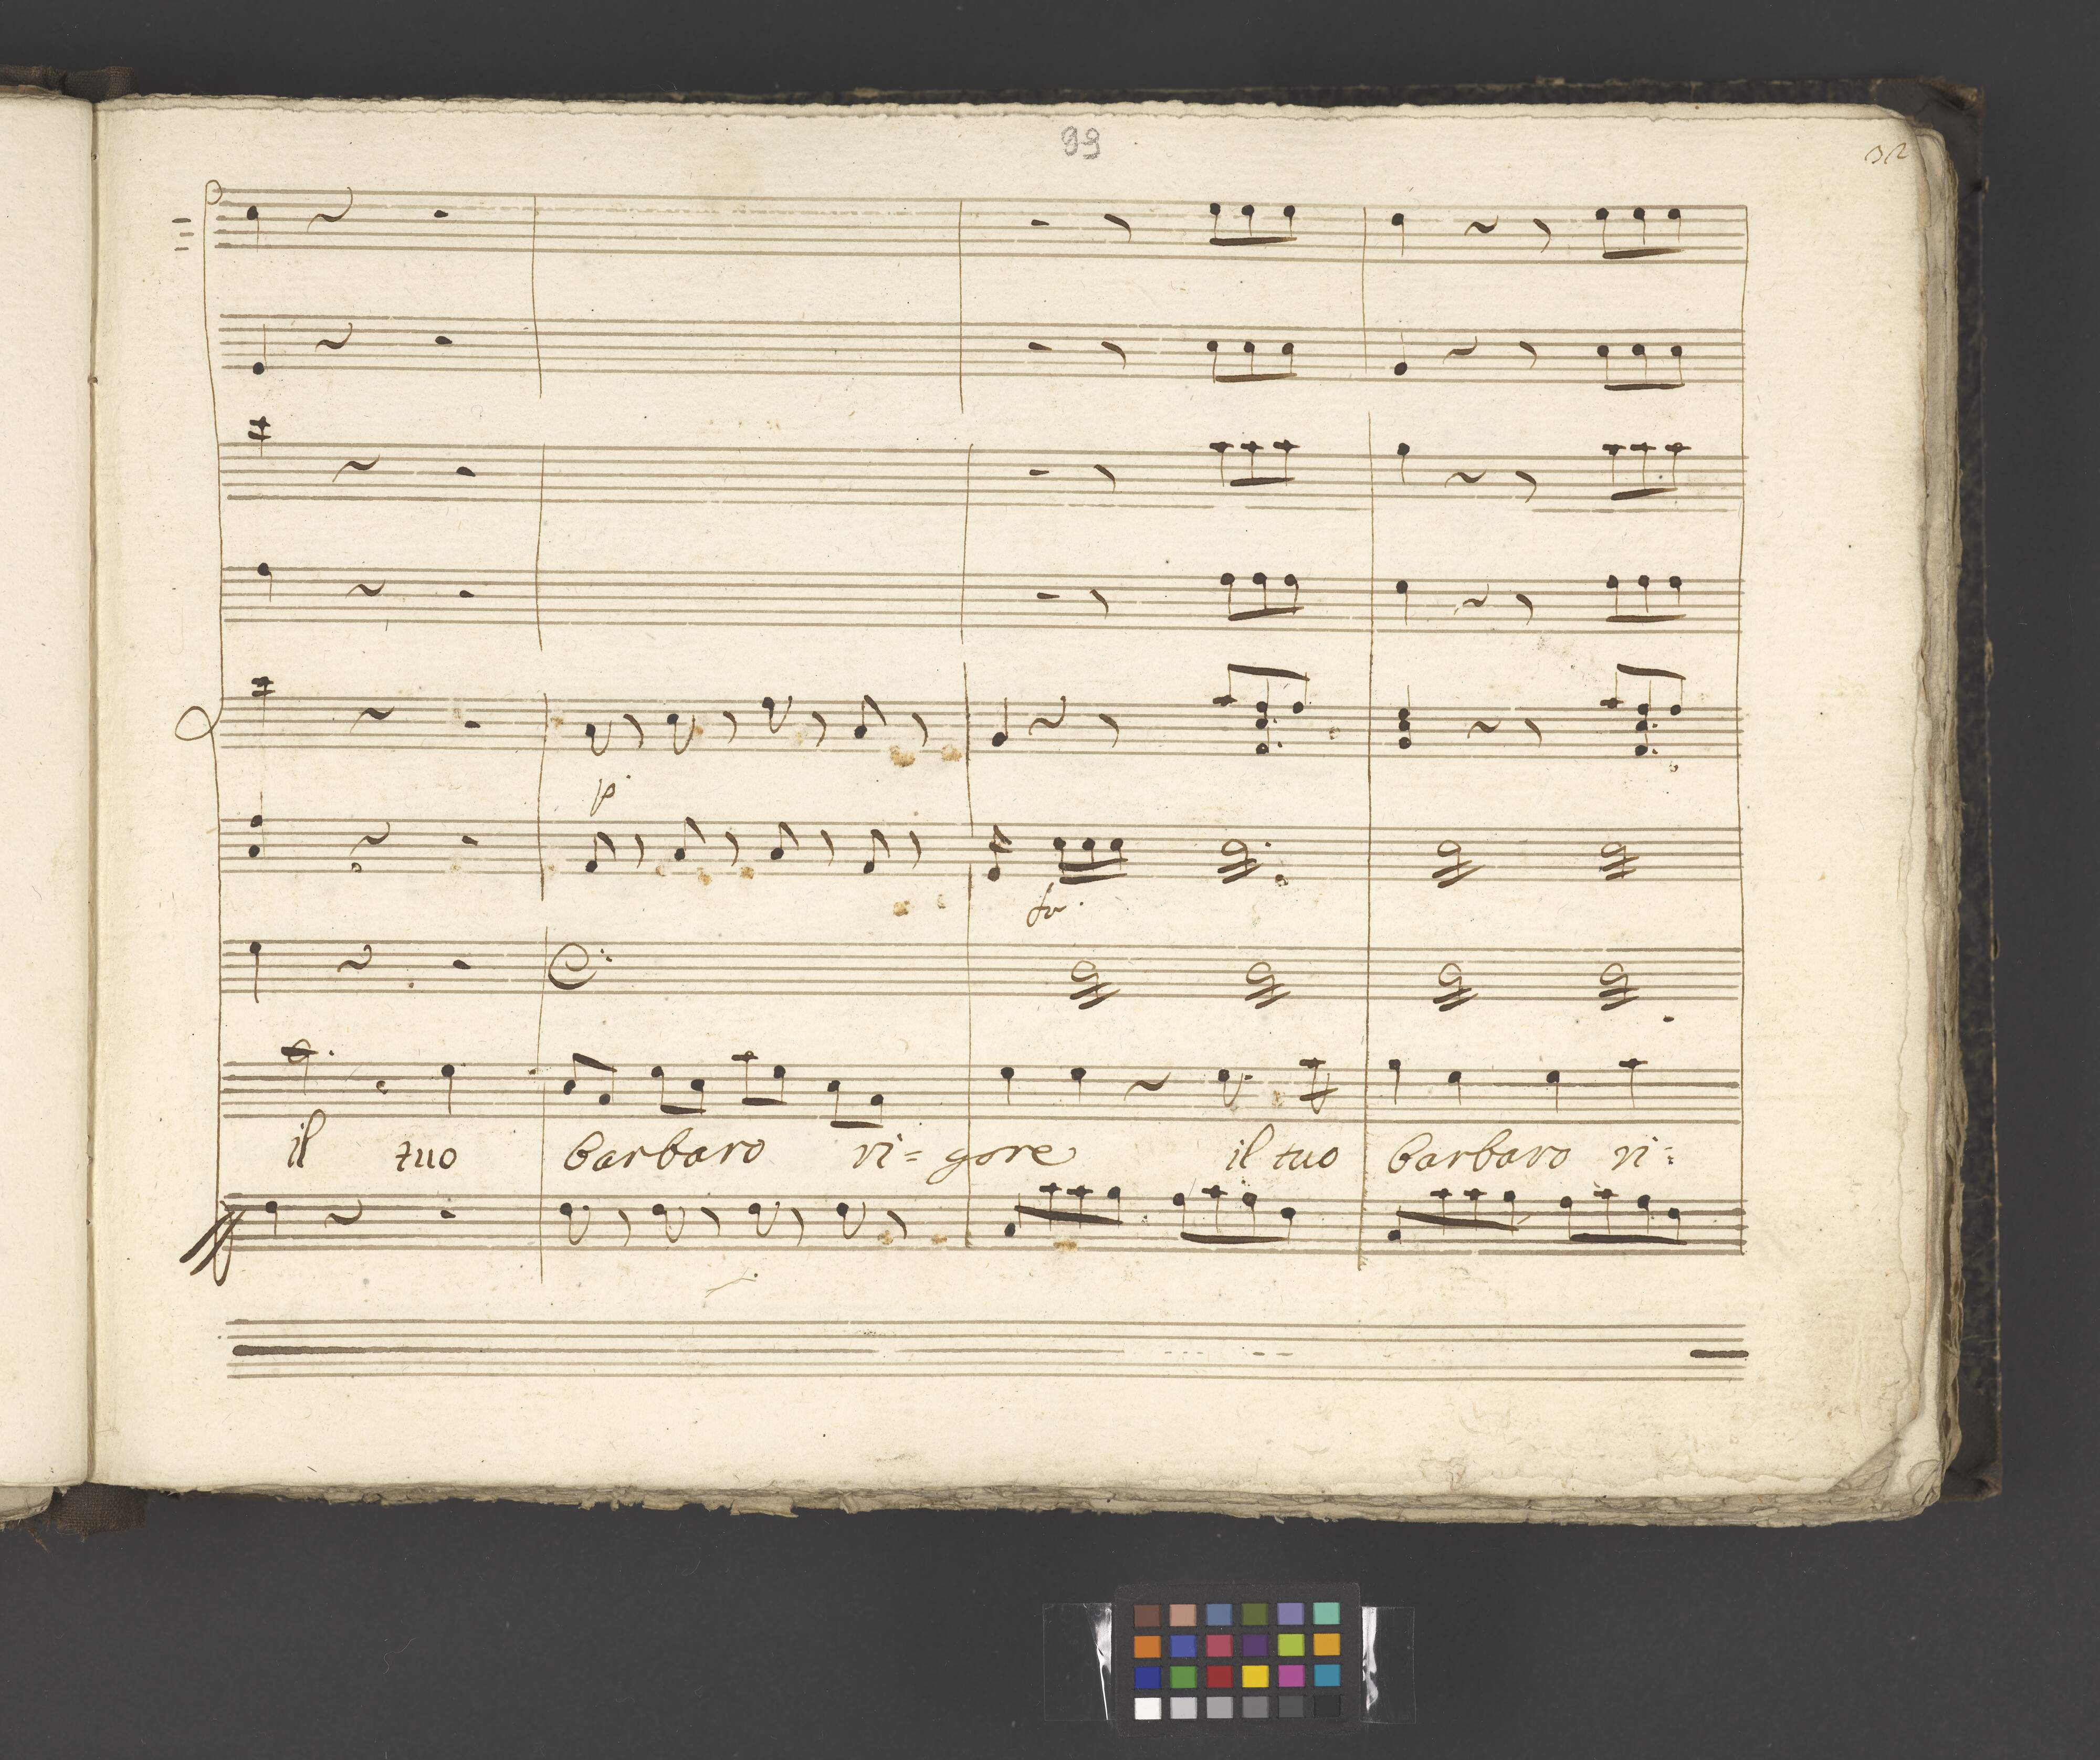 99
32
p.
for.
il tuo barbaro ri= gore il tuo barbaro ri=